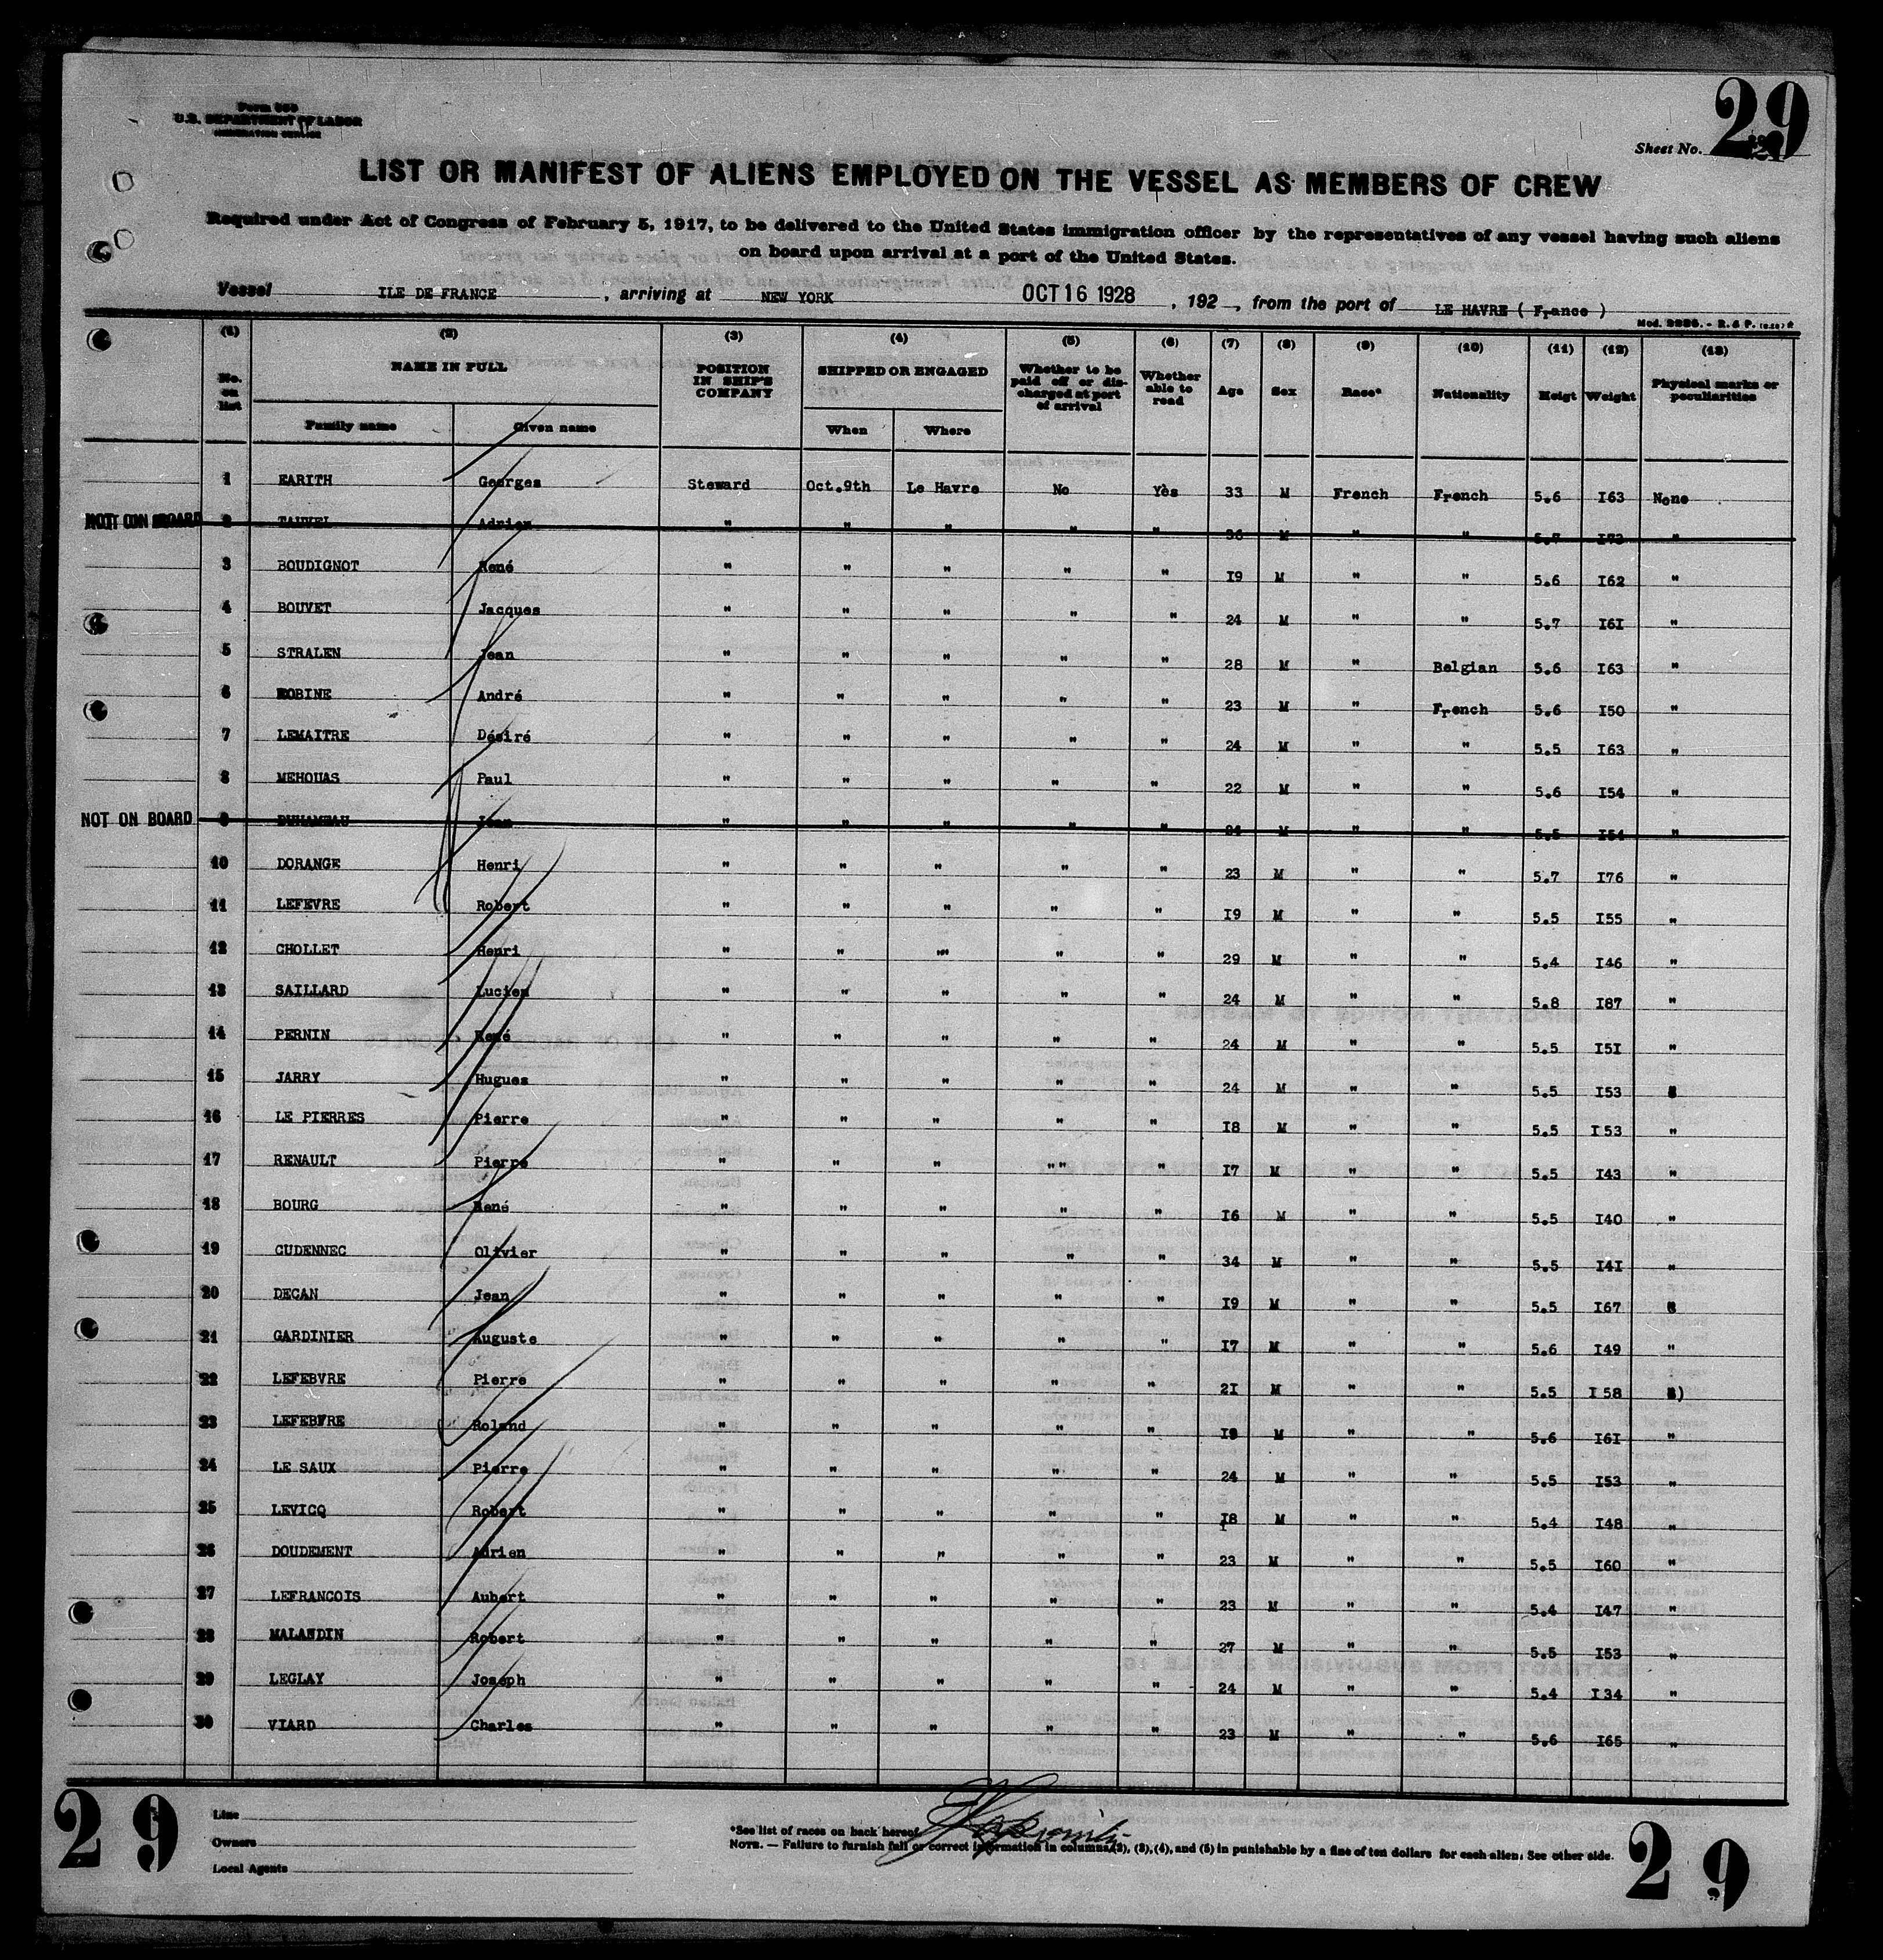 29
Form 680
U.S. DEPARTMENT OF LABOR
IMMIGRATION SERVICE
Sheet No.
LIST OR MANIFEST OF ALIENS EMPLOYED ON THE VESSEL AS MEMBERS OF CREW
Required under Act of Congress of February 5, 1917, to be delivered to the United States immigration officer by the representatives of any vessel having such aliens
on board upon arrival at a port of the United States.
Vessel ILE DE FRANCE, arriving at NEW YORK OCT 16 1928, 192 , from the port of LE HAVRE ( France )
(1) (2) (3) (4) (5) (6) (7) (8) (9) (10) (11) (12) (13)
No. on list NAME IN FULL POSITION IN SHIP'S COMPANY SHIPPED OR ENGAGED Whether to be paid off or discharged at port of arrival Whether able to read Age Sex Race* Nationality Heigt Weight Physical marks or peculiarities
Family name Given name When Where
1 EARITH Georges Steward Oct.9th Le Havre No Yès 33 M French French 5.6 I63 None
NOT ON BOARD 2 TAUVEL Adrien " " " " " 36 M " " 5.7 I72 "
3 BOUDIGNOT René " " " " " I9 M " " 5.6 I62 "
4 BOUVET Jacques " " " " " 24 M " " 5.7 I6I "
5 STRALEN Jean " " " " " 28 M " Belgian 5.6 I63 "
6 ROBINE André " " " " " 23 M " French 5.6 I50 "
7 LEMAITRE Désiré " " " " " 24 M " " 5.5 I63 "
8 MEHOUAS Paul " " " " " 22 M " " 5.6 I54 "
NOT ON BOARD 9 DUHAMEAU Jean " " " " " M " " 5.5 I54 "
10 DORANGE Henri " " " " " 23 M " " 5.7 I76 "
11 LEFEVRE Robert " " " " " I9 M " " 5.5 I55 "
12 CHOLLET Henri " " "" " " 29 M " " 5.4 I46 "
13 SAILLARD Lucien " " " " " 24 M " " 5.8 I87 "
14 PERNIN René " " " " " 24 M " " 5.5 I5I "
15 JARRY Hugues " " " " " 24 M " " 5.5 I53
16 LE PIERRES Pierre " " " " " I8 M " " 5.5 I53 "
17 RENAULT Pierre " " " "" " I7 M " " 5.5 I43 "
18 BOURG René " " " " " I6 M " " 5.5 I40 "
19 CUDENNEC Olivier " " " " " 34 M " " 5.5 I4I "
20 DECAN Jean " " " " " I9 M " " 5.5 I67
21 GARDINIER Auguste " " " " " I7 M " " 5.6 I49 "
22 LEFEBVRE Pierre " " " " " 2I M " " 5.5 I 58 )
23 LEFEBVRE Roland " " " " " M " " 5.6 I6I "
24 LE SAUX Pierre " " " " " 24 M " " 5.5 I53 "
25 LEVICQ Robert " " " " " I8 M " " 5.4 I48 "
26 DOUDEMENT Adrien " " " " " 23 M " " 5.5 I60 "
27 LEFRANCOIS Aubert " " " " " 23 M " " 5.4 I47 "
28 MALANDIN Robert " " " " " 27 M " " 5.5 I53 "
29 LEGLAY Joseph " " " " " 24 M " " 5.4 I34 "
30 VIARD Charles " " " " " 23 M " " 5.6 I65 "
29
Line
Owners
Local Agents
*See list of races on back hereof
NOTE. — Failure to furnish full or correct information in columns (2), (3), (4), and (5) in punishable by a fine of ten dollars for each alien. See other side.
29